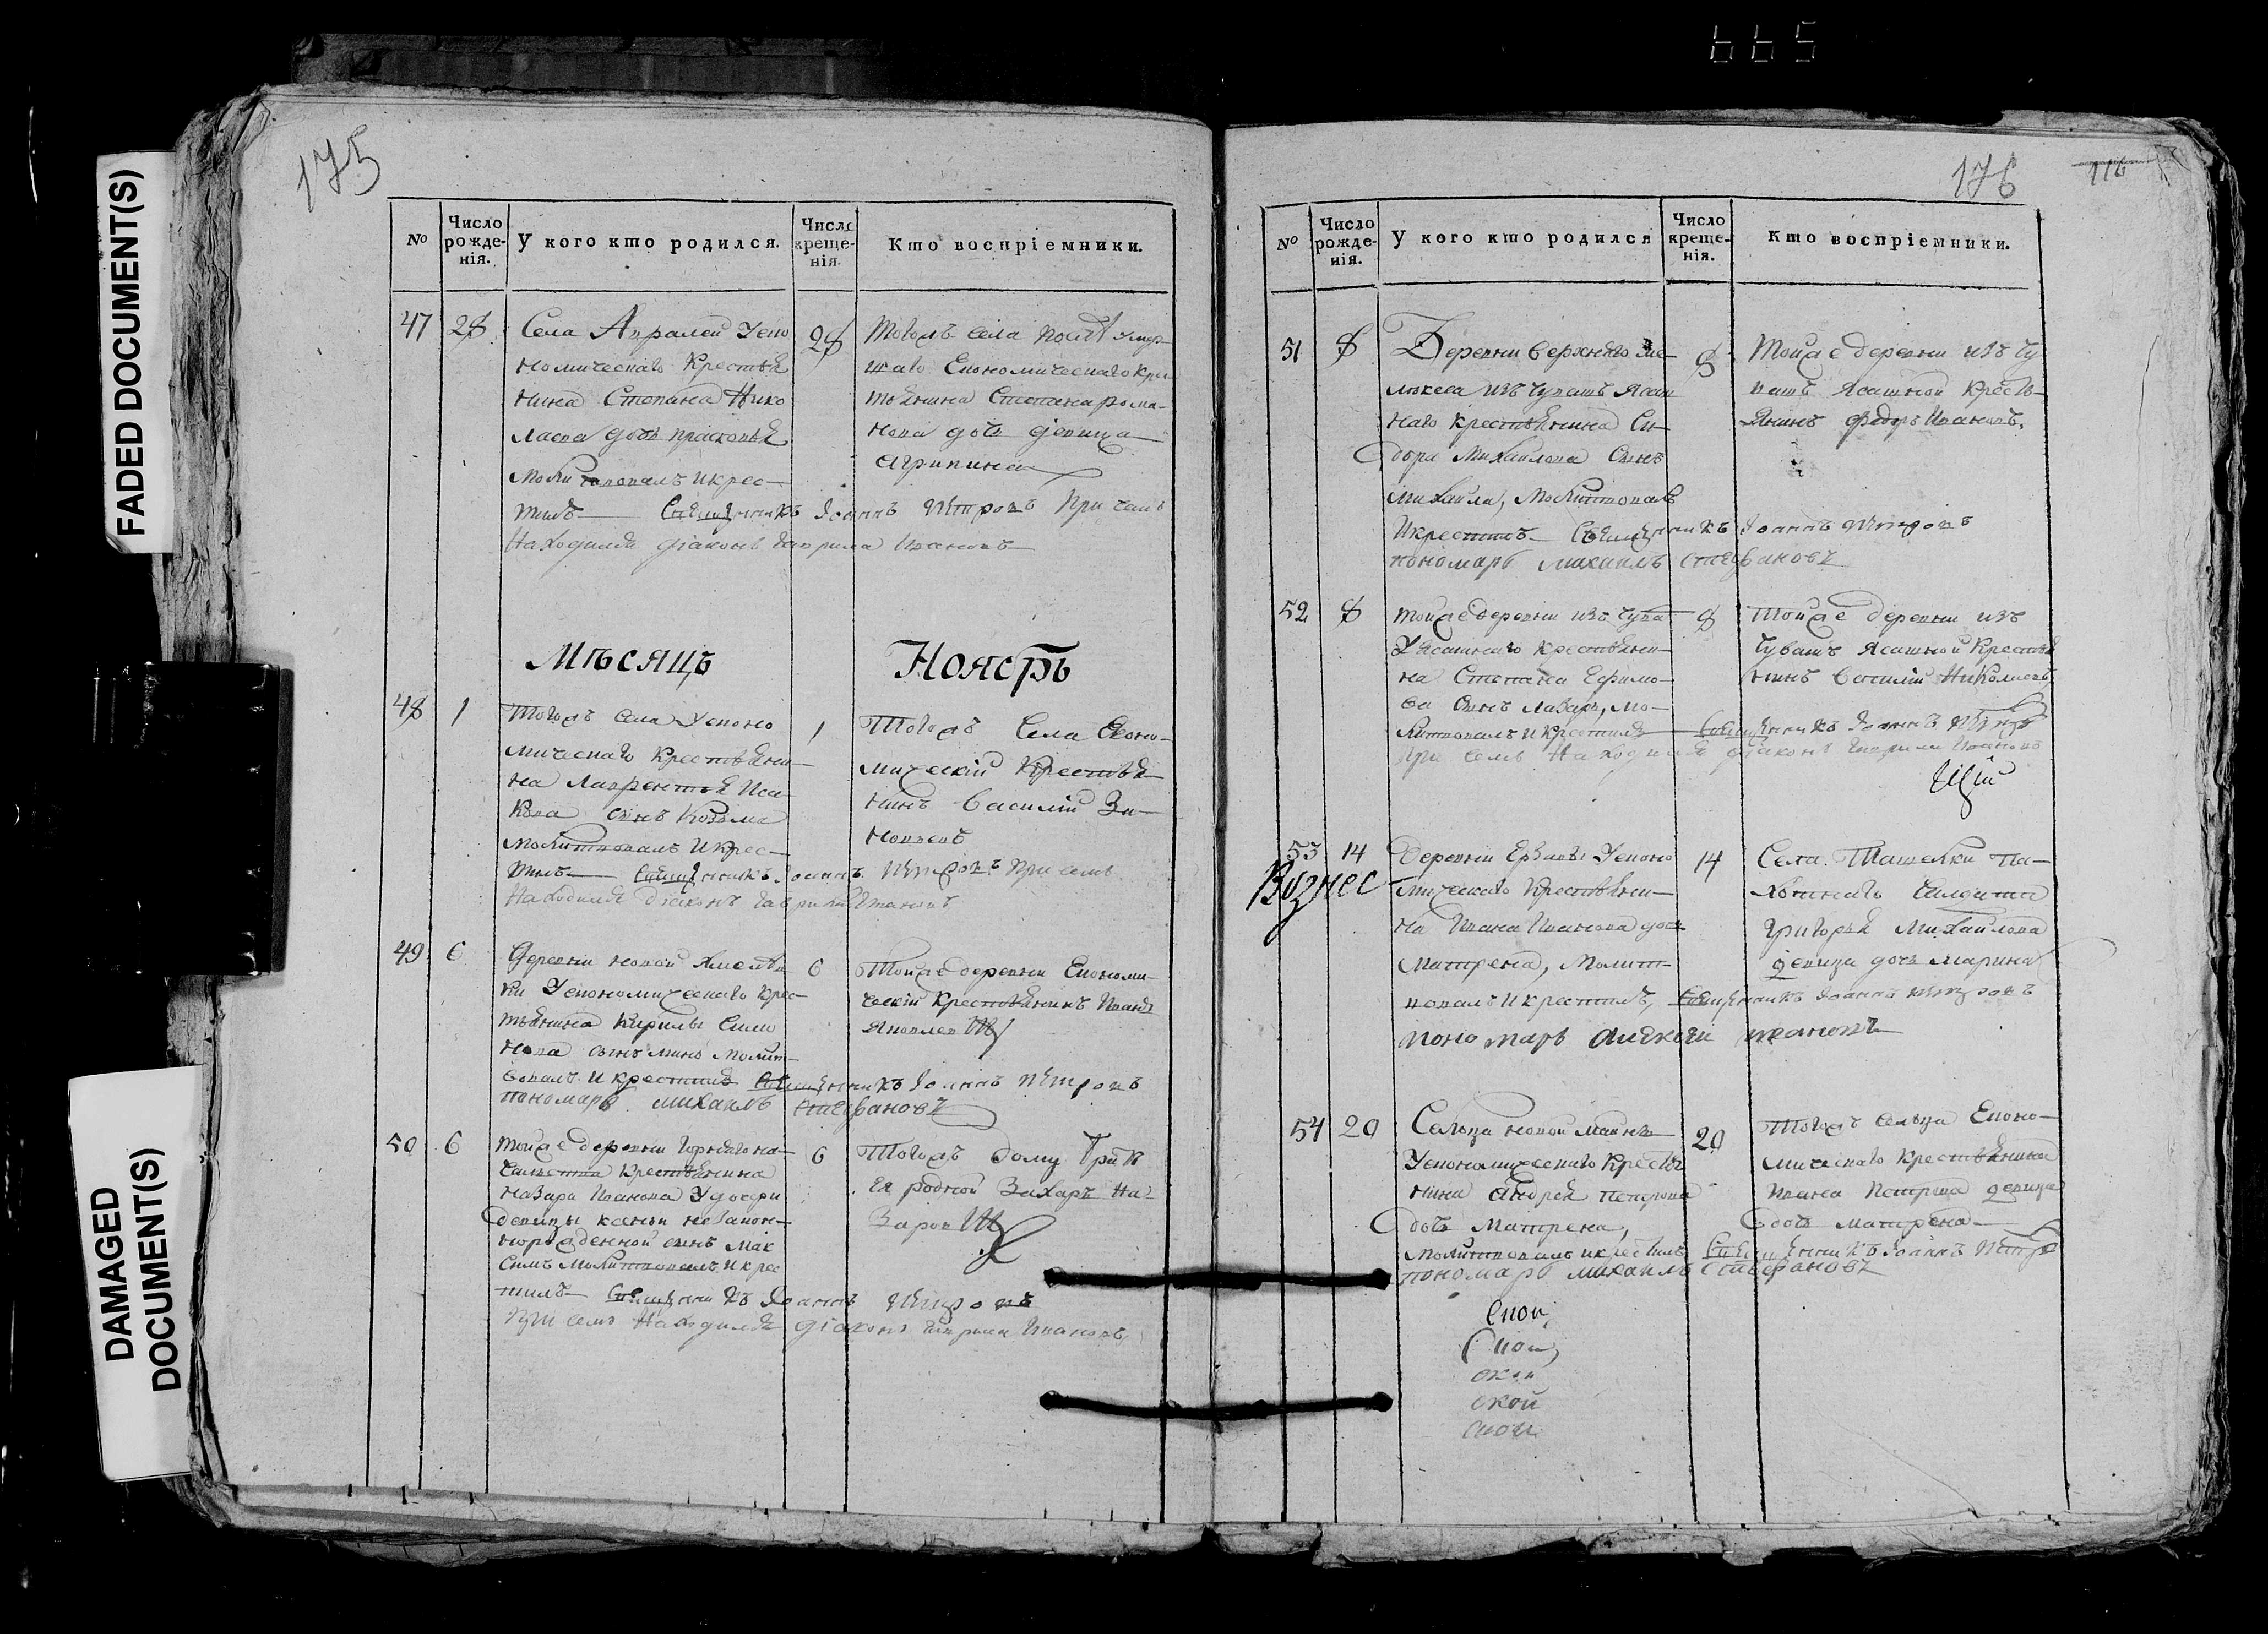 665
FADED DOCUMENT(S)
DAMAGED DOCUMENT(S)
175
№
Число рожде-нія.
У кого кто родился.
Число креще-нія.
Кто воспріемники.
47 28
Села Аврали Уеко
номическаго Крестья
нина Степана Нико
лаева дочь прасковья
молитвовалъ икрес—
тилъ— Священникъ Іоаннъ Петровъ При чемъ
Находился діаконъ гаврила Ивановъ
28
Тогожъ села
шаго Економическаго кре
тьянина Степана рома-
нова дочь девица
агрипина
Мѣсяцъ Ноябрь
48 1
Тогожъ села Уеконо
мическаго крестьяни—
на Лаврентья Иса
кова сынъ Козьма
молитвовалъ Икрес—
тилъ— Священникъ Іоаннъ Петровъ При семъ
Находился діаконъ гаврила Ивановъ
1
Тогожъ Села Еконо—
мическій Крестья—
нинъ Василій Зи—
новьевъ
49 6
Деревни новой Хмелев
ки Уекономическаго крес—
тьянина Кирилы Симо
нова сынъ мина молит—
вовалъ И крестилъ Священникъ Іоаннъ Петровъ
пономарь михаилъ стефановъ
6
Тойже деревни Економи—
ческій Крестьянинъ Иванъ
Яковлевъ
50 6
тойже деревни
крестьянина
Назара Иванова Удочери
девицы ксеньи незакон—
норожденной сынъ Мак
симъ молитвовалъ Икрес
тилъ— Священникъ Іоаннъ Петровъ
При семъ Находился діаконъ гаврила Ивановъ
6
Тогожъ дому
Ея родной Захаръ На—
заровъ
176
116
№
Число рожде-нія.
У кого кто родился
Число креще-нія.
Кто воспріемники.
51 8
Деревни верхняго
изъ Чувашъ Ясаш
наго крестьянина Си—
дора Михайлова Сынъ
михайла, молитвовалъ
Икрестилъ— Священникъ Іоаннъ Петровъ
пономарь михаилъ стефановъ
8
Тойже деревни изъ Чу
вашъ Ясашной кресть—
янинъ федоръ Ивановъ.
52 8
тойже деревни изъ Чува
Уясашнаго крестьяни—
на Степана Ефимо—
ва сынъ Лазарь, мо—
литвовалъ Икрестилъ— Священникъ Іоаннъ Петровъ
При семъ Находился діаконъ гаврила Ивановъ
8
Тойже деревни изъ
Чувашъ Ясашной крестья
нинъ Василій Николаевъ
53 14
Вознес
деревни Уеконо
мическаго крестьяни—
на Ивана Иванова дочь
Матрена, молит—
вовалъ Икрестилъ, Священникъ Іоаннъ Петровъ
пономарь алексѣй ивановъ
14
Села Ташелки Па—
хотнаго Салдата
Григорья Михайлова
девица дочь марина
54 20
Сельца новой маины
Уекономическаго кресть
нина андрея петрова
дочь Матрена,
молитвовалъ икрестилъ Священникъ Іоаннъ Петро
пономарь михаилъ стефановъ
20
Тогожъ сельца Еконо—
мическаго крестьянина
Ивана Петрова девица
дочь матрена—
ской